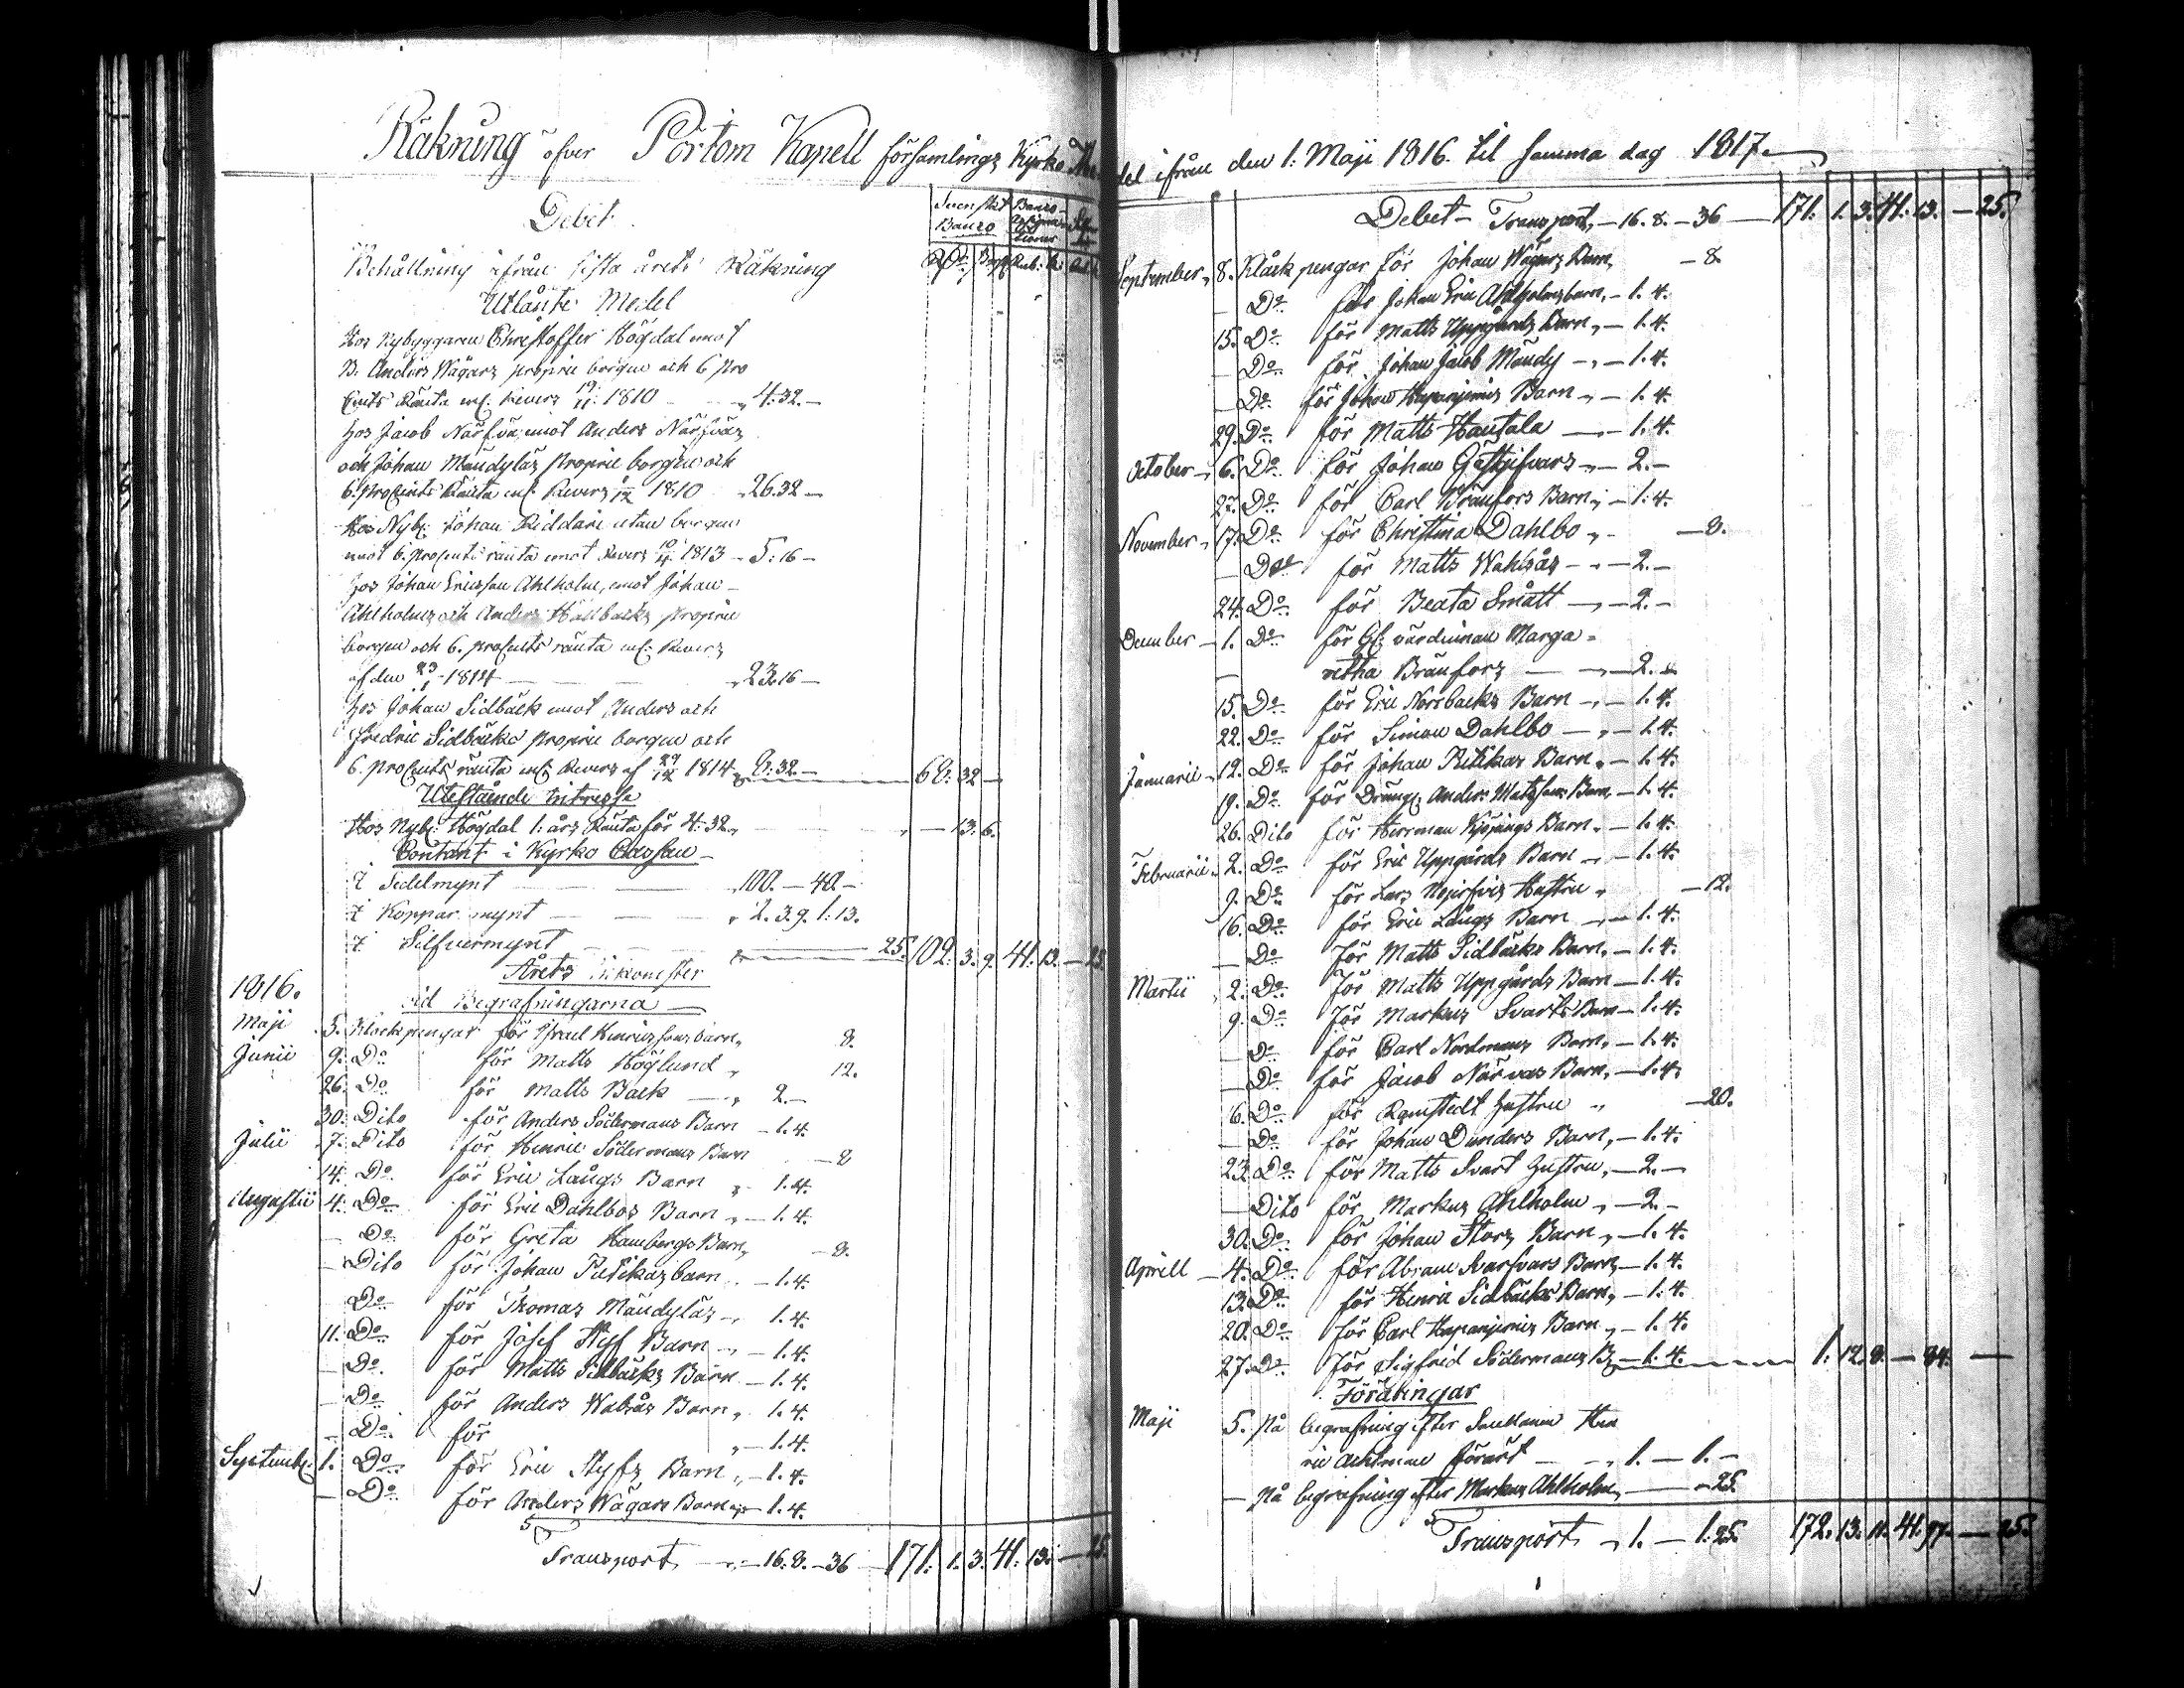 Räkning öfver Pörtom Kapell församlings Kyrko
Debet
Svenskt Banco
Banco
Behållning ifrån sista årets Räkning
Utlånte Medel
Hos Nybyggaren Christoffer Högdal emot
B. Anders Wägars proprie borgen och 6 pro
Cents Ränta enl. Revers 19/11. 1810 4:32.—
hos Jacob Närfvä emot Anders Närfväs
och Johan Mändyläs proprie borgen och
6. proCents Ränta enl. Revers 1810 26.32—
Hos Nyb. Johan Riddare utan borgen
mot 6. proCents ränta emot Revers 1813 — 5:16—
hos Johan Ericsson Ahlholm, emot Johan
Ahlholms och Anders Hällbacks proprie
borgen och 6. proCents ränta enl. Revers
af den 1814 — 23.16—
hos Johan Sidbäck emot Anders och
Fredric Sidbäcks proprie borgen och
6. proCents ränta enl. Revers af 29/12 1814 8:32— 68. 32—
Utestående intresse
Hos Nyb. Högdal 1: års Ränta för 4:32 — 13. 6.
Contant i Kyrko Cassan—
I Sedelmynt 100.—40.—
I Koppar mynt 2.3.9. 1:13.
I Silfvermynt 25. 102. 3. 9. 41. 13.—25.
Årets Inkomster
1816.
vid Begrafningarna—
Maji 5. Klockpengar för Israel Henricssons barn 8.
Junii 9. Do för Matts Höglund 12.
26. Do för Matts Back 2.—
30. Dito för Anders Södermans Barn —1.4.
Julii 7. Dito för Henric Södermans Barn —8
14. Do för Eric Långs Barn 1.4.
Augustii 4. Do för Eric Dahlbos Barn —1.4.
— Do för Greta Hambergs Barn —8.
— Dito för Johan Pitikas barn —1.4.
Do för Thomas Mändyläs 1.4.
11. Do för Josef Styf Barn —1.4.
— Do för Matts Sidbäcks Barn —1.4.
— Do för Anders Wahsås Barn 1.4.
— Do för —1.4.
Septemb. 1. Do för Eric Styfs Barn —1.4.
— Do för Anders Wägars Barn —1.4.
Transport —16.8.—36 —171. 1. 3. 41. 13.—25.
del ifrån den 1: Maji 1816. til samma dag 1817.
Debet— Transport —16.8.—36— 171. 1. 3. 41. 13.—25.
September 8. Klåckpengar för Johan Wägars Barn —8.
— Do för Johan Eric Ahlholms barn —1.4.
15. Do för Matts Uppgårds Barn —1.4.
— Do för Johan Jacob Mändy —1.4.
— Do för Johan Hapanjemis Barn —1.4.
29. Do för Matts Hautala —1.4.
October 6. Do för Johan Gästgifvars —2.—
27. Do för Carl Bränfors Barn —1.4.
November 17. Do för Christina Dahlbo —8.
— Do för Matts Wahlsås —2.—
24. Do för Beata Smått —2.—
December 1. Do för Gl. värdinnan Marga-
retha Bränfors —2.—
15. Do för Eric Norrbacks Barn —1.4.
22. Do för Simon Dahlbo —1.4.
Januarii 12. Do för Johan Pitikas Barn —1.4.
19. Do för Dräng. Anders Matssons Barn —1.4.
26. Dito för Herrman Kjöpings Barn —1.4.
Februarii 2. Do för Eric Uppgårds Barn —1.4.
9. Do för Lars Hustru —12.
16. Do för Eric Långs Barn —1.4.
— Do för Matts Sidbäcks Barn —1.4.
Martii 2. Do för Matts Uppgårds Barn —1.4.
9. Do för Markus Svarts Barn —1.4.
— Do för Carl Nordmans Barn —1.4.
— Do för Jacob Närvas Barn —1.4.
16. Do för Ramstedt hustru —20.
— Do för Johan Dunders Barn —1.4.
23. Do för Matts Svart hustru —2.—
— Dito för Markus Ahlholm —2.—
30. Do för Johan Stors Barn —1.4.
Aprill —4. Do för Abram Svarfvars Barn —1.4.
13. Do för Henric Sidbäcks Barn —1.4.
20. Do för Carl Hapanjemis Barn —1.4.
27. Do för Sigfrid Södermans B —1.4. 1. 12. 8.—84.—
Föräringar
Maji 5. På begrafning efter Hen
ric Achtman förärt — 1.—1.—
— På begrafning efter Markus Ahlholm —25.
Transport 1.—1.25. 172. 13. 11. 41. 97.—25.